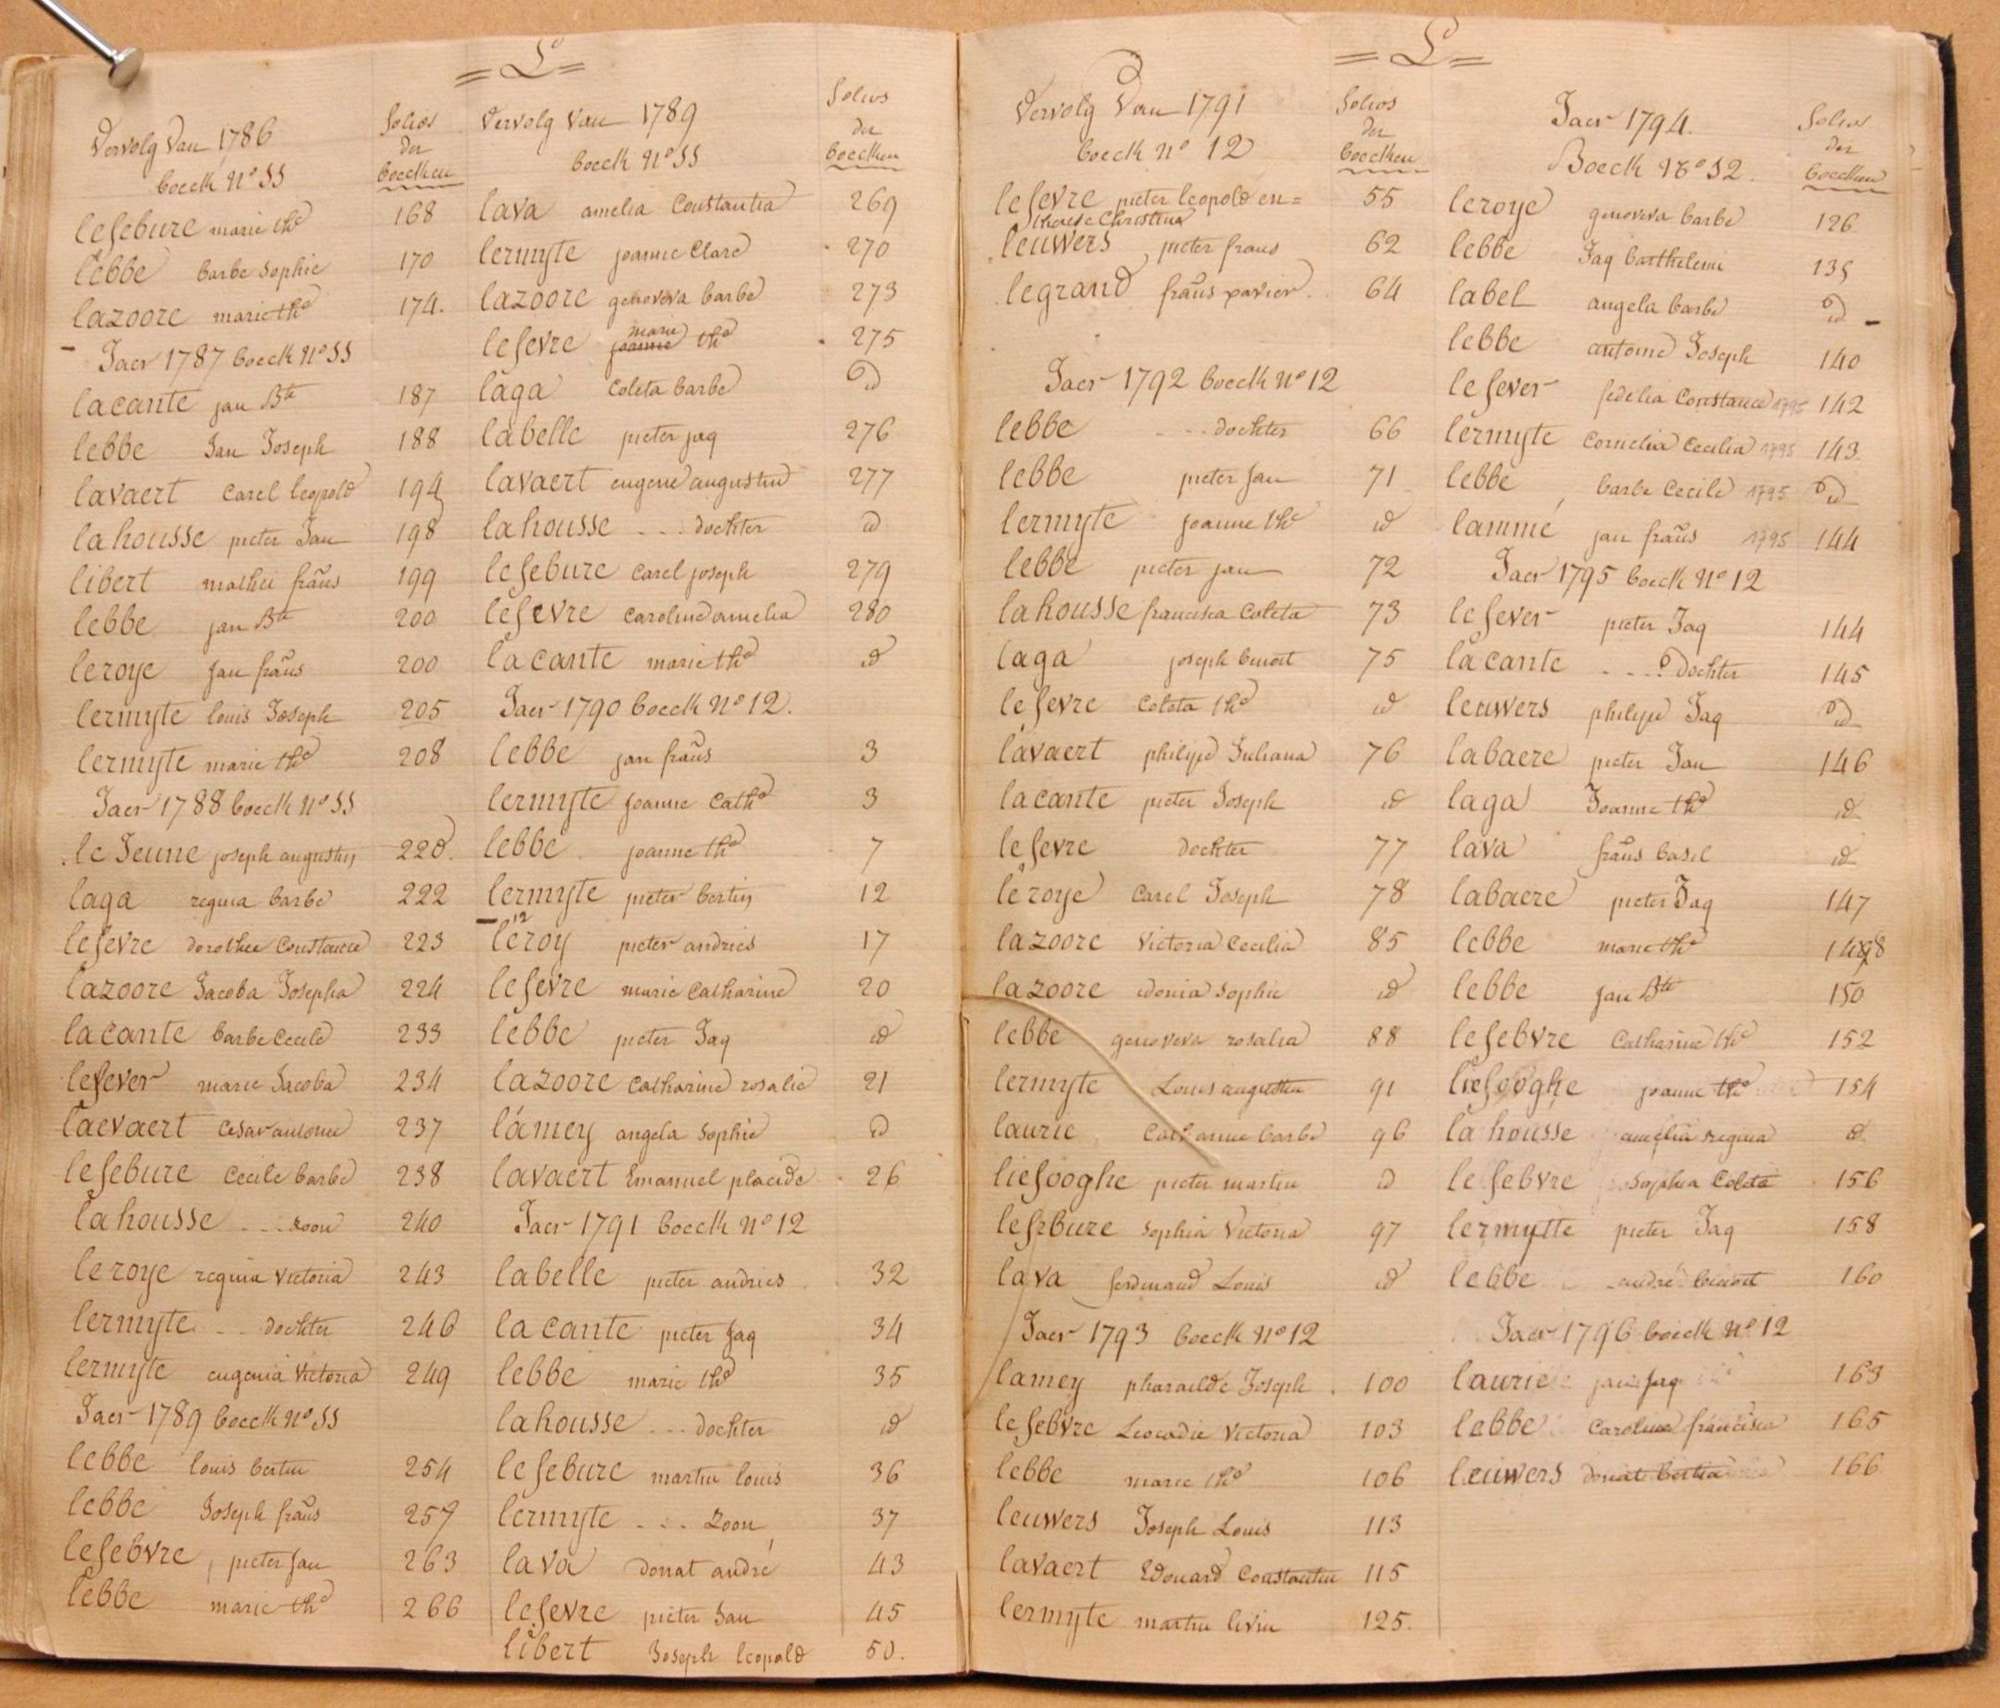 = L =
Vervolg Van 1786
boeck N° 11
folios der boecken
lefebure marie th^e 168
lebbe barbe Sophie 170
lazoore marie th^e 174.
Jaer 1787 boeck N° 11
lacante jan B^te 187
lebbe Jan Joseph 188
lavaert Carel leopold 194
lahousse pieter Jan 198
libert mathei frans 199
lebbe jan B^te 200
leroye Jan frans 200
lermyte louis Joseph 205
lermyte marie th^e 208
Jaer 1788 boeck N° 11
le Jeune joseph augustin
laga regina barbe 222
lefevre dorothee Constance 223
lazoore Jacoba Josepha 224
lacante barbe Cecile 233
lefever marie Jacoba 234
laevaert Cesar antoine 237
lefebure Cecile barbe 238
lahousse ... zoon 240
leroye regina victoria 243
lermyte ... dochter 246
lermyte eugenia Victoria 249
Jaer 1789 boeck N° 11
lebbe louis bertin 254
lebbe Joseph frans 257
lefebvre pieter Jan 263
lebbe marie th^e 266
Vervolg Van 1789
boeck N° 11
folios der boecken
lava amelia Constantia 269
lermyte joanne Clare 270
lazoore genoveva barbe 273
lefevre marie th^e 275
laga Coleta barbe id
labelle pieter jaq 276
lavaert eugene augustin 277
lahousse ... dochter id
lefebure Carel joseph 279
lefevre Caroline amelia 280
lacante marie th^e id
Jaer 1790 boeck N° 12.
lebbe jan frans 3
lermyte joanne Cath^e 3
lebbe joanne th^e 7
lermyte pieter bertin 12
12
leroy pieter andries 17
lefevre marie Catharine 20
lebbe pieter Jaq id
lazoore Catharine rosalie 21
lamey angela Sophie id
lavaert Emanuel placide 26
Jaer 1791 boeck N° 12
labelle pieter andries 32
lacante pieter Jaq 34
lebbe marie th^e 35
lahousse ... dochter id
lefebure martin louis 36
lermyte ... zoon 37
lava donat andré 43
lefevre pieter Jan 45
libert Joseph leopold 50.
= L =
Vervolg Van 1791
boeck N° 12
folios der boecken
lefevre pieter leopold en= 55
therese Christina
leuwers pieter frans 62
legrand frans xavier. 64
Jaer 1792 boeck N° 12
lebbe ... dochter 66
lebbe pieter Jan 71
lermyte joanne th^e id
lebbe pieter jan 72
lahousse francisca Coleta 73
laga joseph benoit 75
lefevre Coleta th^e id
lavaert philipe Juliana 76
lacante pieter Joseph id
lefevre dochter 77
leroye Carel Joseph 78
lazoore Victoria Cecilia 85
lazoore idonia Sophie id
lebbe genoveva rosalia 88
lermyte Louis augustin 91
laurie Catharine barbe 96
liefooghe pieter martin id
lefebure Sophia Victoria 97
lava ferdinand Louis id
Jaer 1793 boeck N° 12
lamey pharailde Joseph 100
lefebvre Leocadie Victoria 103
lebbe marie th^e 106
leuwers Joseph Louis 113
lavaert Edouard Constantin 115
lermyte martin livin 125.
Jaer 1794.
Boeck N° 12.
folios der boecken
leroye genoveva barbe 126
lebbe Jaq barthelemi
label angela barbe id
lebbe antoine Joseph 140
lefever fedelia Constance 1795 142
lermyte Cornelia Cecilia 1795 143
lebbe barbe Cecile 1795 id
lammé jan frans 1795 144
Jaer 1795 boeck N° 12
lefever pieter Jaq 144
lacante ... dochter 145
leuwers philipe Jaq id
labaere pieter Jan 146
laga Joanne th^e id
lava frans basil id
labaere pieter Jaq 147
lebbe marie th^e 148
lebbe jan B^te 150
lefebvre Catharine th^e 152
liefooghe joanne th^e 154
lahousse amelia regina id
lefebvre Sophia Coleta 156
lermytte pieter Jaq 158
lebbe andré benoit 160
Jaer 1796 boeck N° 12
laurie jaq 163
lebbe Caroline francisca 165
leuwers donat 166